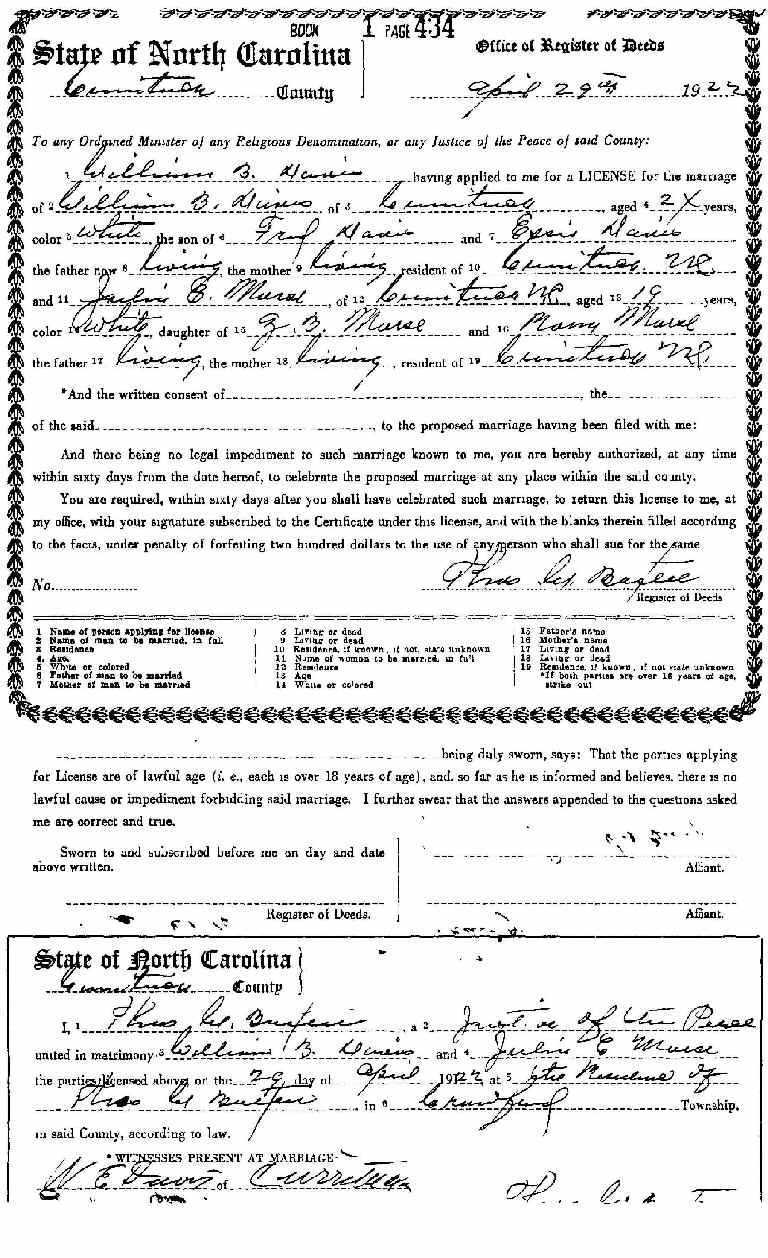 BOOK 1 PAGE 434
State of North Carolina
Office of Register of Deeds
Currituck County
April 29th 1922
To any Ordained Minister of any Religious Denomination, or any Justice of the Peace of said County:
1 William B. Davis having applied to me for a LICENSE for the marriage
of 2 William B. Davis of 3 Currituck, aged 4 2 years,
color 5 White the son of 6 Davis and 7 Davis
the father now 8 living, the mother 9 living, resident of 10 Currituck NC,
and 11 E. Morse, of 12 Currituck NC, aged 13 19 years,
color 14 White, daughter of 15 B. Morse and 16 Morse
the father 17 living, the mother 18 living, resident of 19 Currituck NC.
*And the written consent of, the
of the said, to the proposed marriage having been filed with me:
And there being no legal impediment to such marriage known to me, you are hereby authorized, at any time
within sixty days from the date hereof, to celebrate the proposed marriage at any place within the said county.
You are required, within sixty days after you shall have celebrated such marriage, to return this license to me, at
my office, with your signature subscribed to the Certificate under this license, and with the blanks therein filled according
to the facts, under penalty of forfeiting two hundred dollars to the use of any person who shall sue for the same
No.
Thos
Register of Deeds
1 Name of person applying for license
2 Name of man to be married, in full
3 Residence
4 Age
5 White or colored
6 Father of man to be married
7 Mother of man to be married
8 Living or dead
9 Living or dead
10 Residence, if known, if not, state unknown
11 Name of woman to be married, in full
12 Residence
13 Age
14 White or colored
15 Father's name
16 Mother's name
17 Living or dead
18 Living or dead
19 Residence, if known, if not state unknown
*If both parties are over 18 years of age,
strike out
being duly sworn, says: That the parties applying
for License are of lawful age (i. e., each is over 18 years of age), and, so far as he is informed and believes, there is no
lawful cause or impediment forbidding said marriage. I further swear that the answers appended to the questions asked
me are correct and true.
Sworn to and subscribed before me on day and date
above written.
Affiant.
Register of Deeds.
Affiant.
State of North Carolina
Currituck County
I, 1 Thos, a 2 Justice of the Peace
united in matrimony 3 William B. Davis and 4 E Morse
the parties licensed above on the 29 day of April 1922 at 5 the Residence of
Thos in 6 Crawford Township,
in said County, according to law.
* WITNESSES PRESENT AT MARRIAGE
W E Davis of Currituck